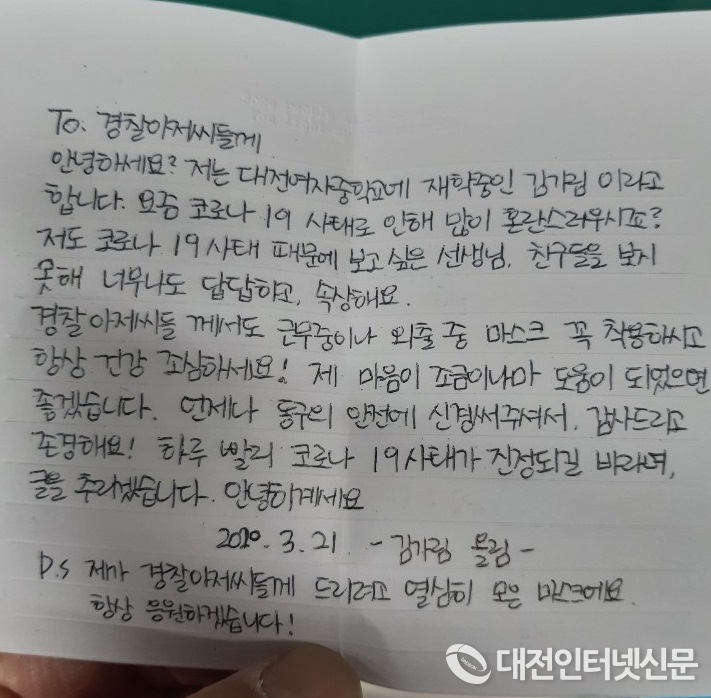 To. 경찰아저씨들께
안녕하세요? 저는 대전여자중학교에 재학중인 김가림 이라고
합니다. 요즘 코로나 19 사태로 인해 많이 혼란스러우시죠?
저도 코로나 19 사태 때문에 보고 싶은 선생님, 친구들을 보지
못해 너무나도 답답하고, 속상해요.
경찰아저씨들 께서도 근무중이나 외출 중 마스크 꼭 착용하시고
항상 건강 조심하세요! 제 마음이 조금이나마 도움이 되었으면
좋겠습니다. 언제나 동구의 안전에 신경써주셔서, 감사드리고
존경해요! 하루 빨리 코로나 19사태가 진정되길 바라며,
글을 추리겠습니다. 안녕히계세요
2020. 3. 21 - 김가림 올림 -
P.S 제가 경찰아저씨들께 드리려고 열심히 모은 마스크에요.
항상 응원하겠습니다!
대전인터넷신문